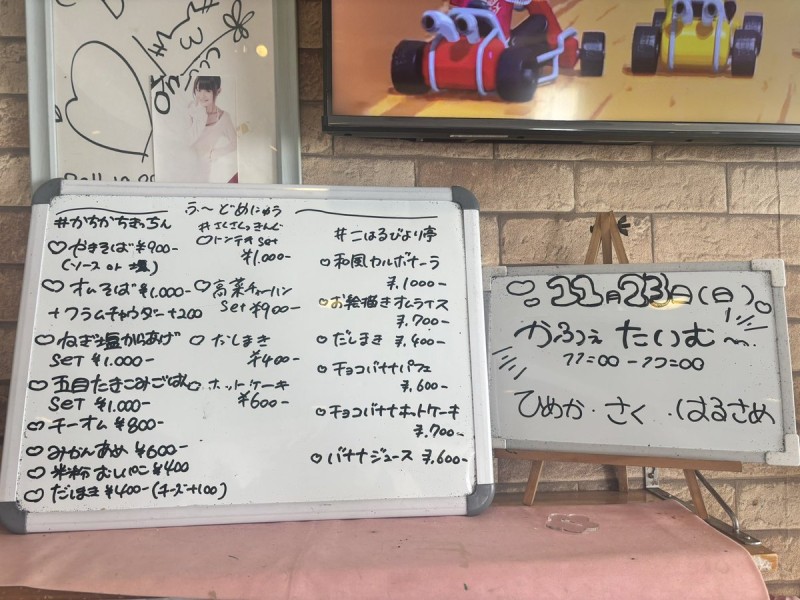 ふ〜どめにゅう
#かちかちきっちん
♡やきそば ¥900-
(ソース or 塩)
♡オムそば ¥1.000-
+クラムチャウダー+200
♡ねぎ塩からあげ
SET ¥1.000-
♡五目たきこみごはん
SET ¥1.000-
♡チーオム ¥800-
♡みかんあめ ¥600-
♡米粉むしパン ¥400
♡だしまき ¥400-(チーズ+100)
#さくさくっきんぐ
♡トンテキ set
¥1.000-
♡高菜チャーハン
Set ¥900-
♡だしまき
¥400-
♡ホットケーキ
¥600-
#こはるびより亭
○和風カルボナーラ
¥.1000-
○お絵描きオムライス
¥.700-
○だしまき ¥.400-
○チョコバナナパフェ
¥.600-
○チョコバナナホットケーキ
¥.700-
○バナナジュース ¥.600-
♡11月23日(日)♡
かふぇ たいむ〜
11:00-17:00
ひめか・さく・はるさめ